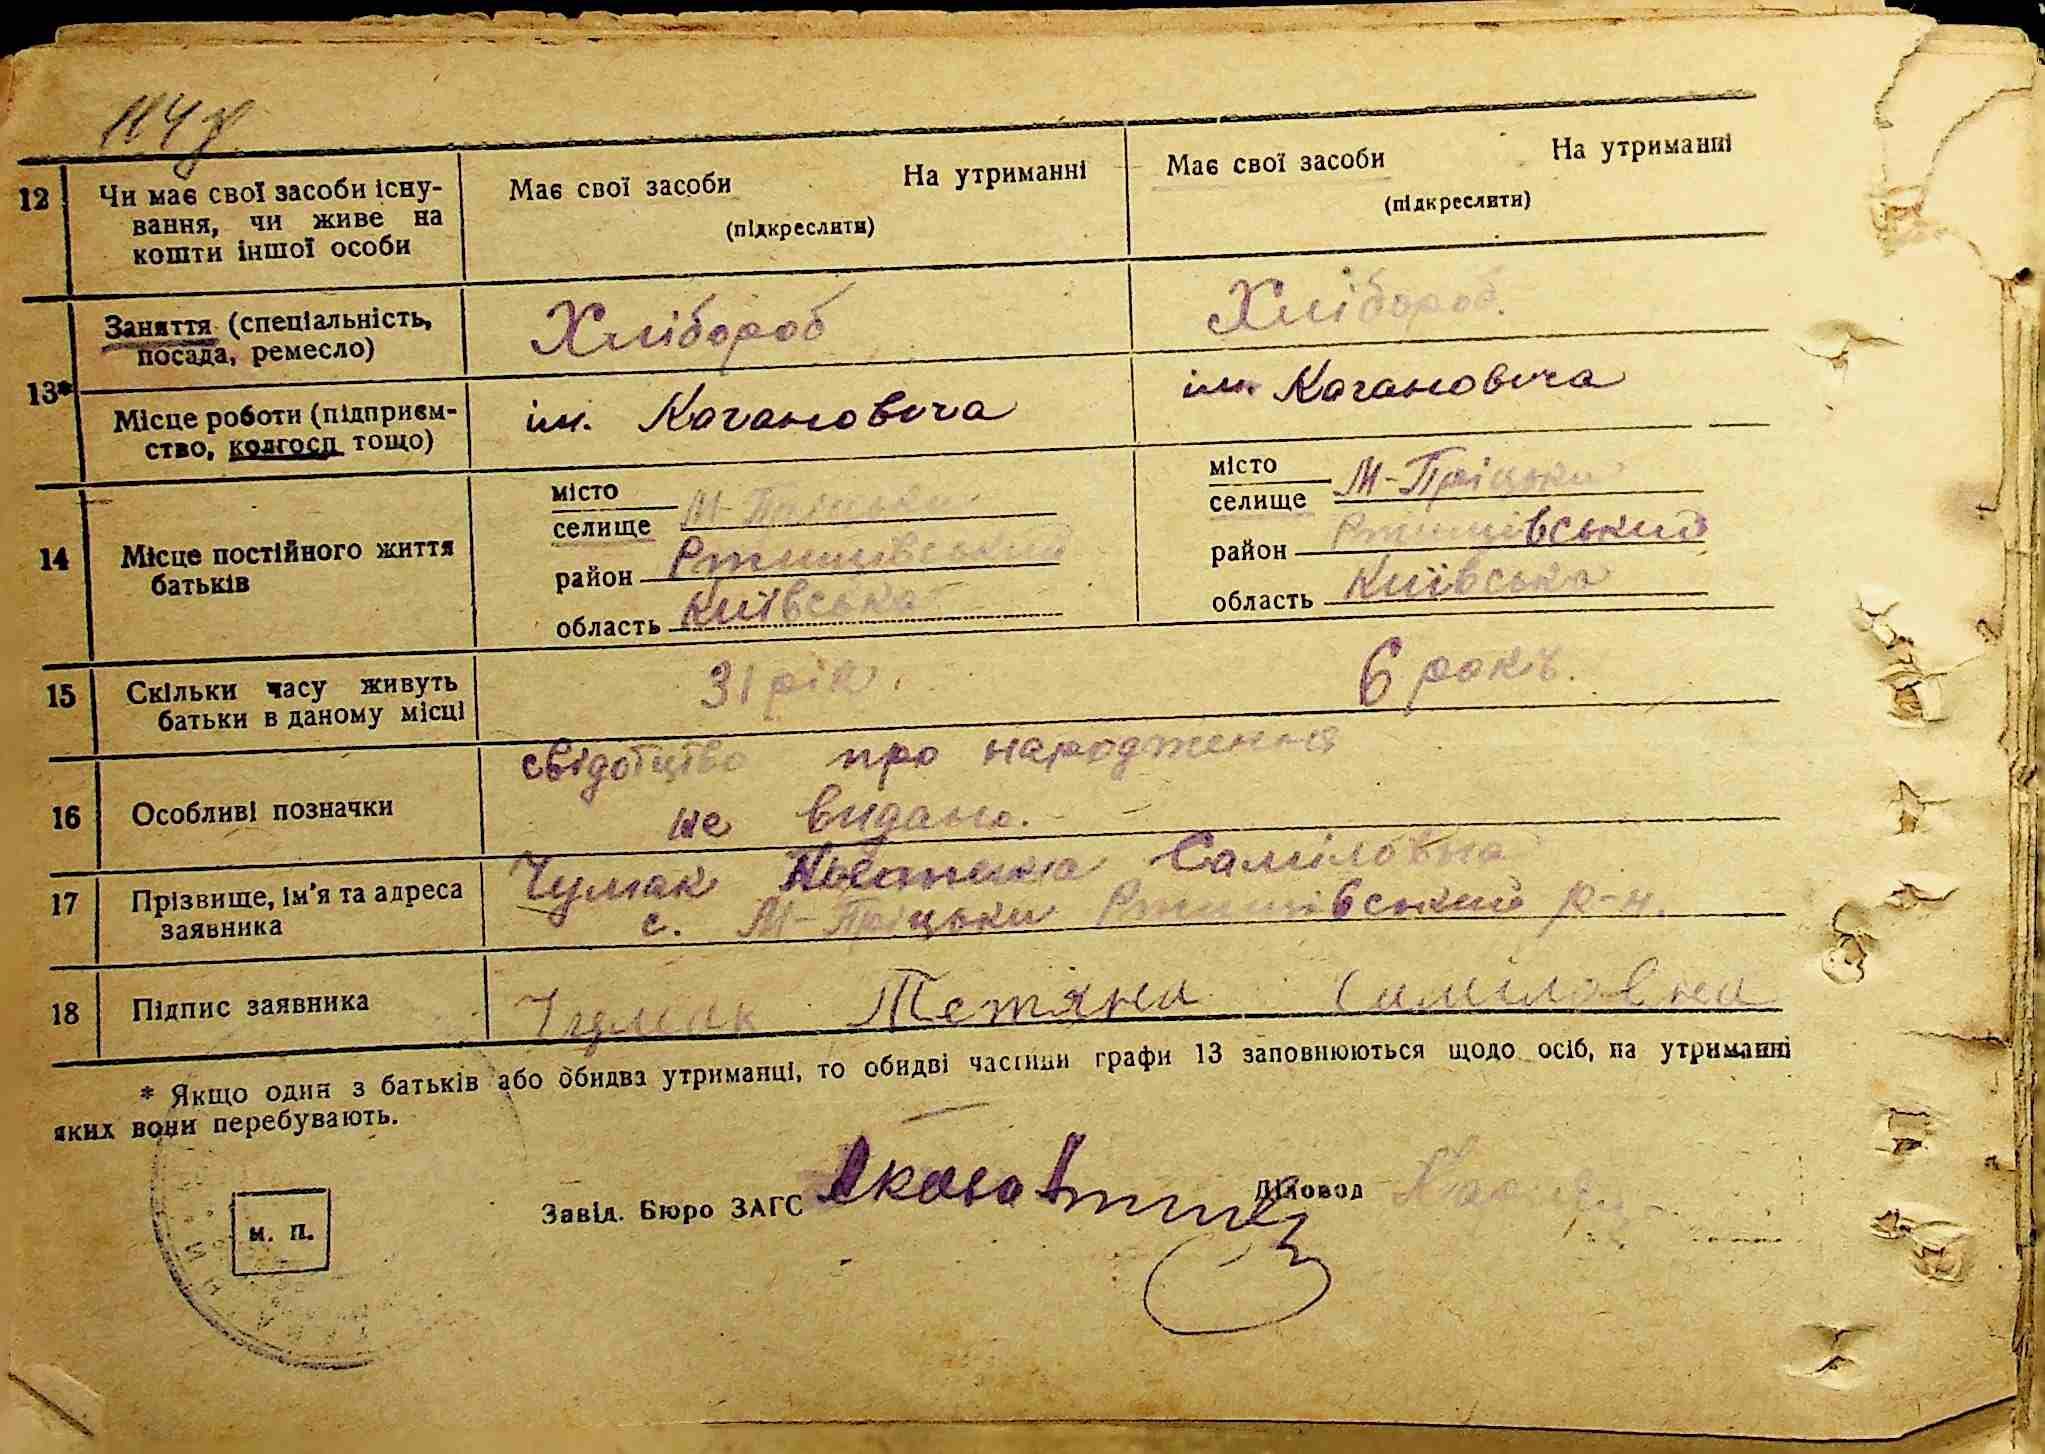 114
12 Чи має свої засоби існу-
вання, чи живе на
кошти іншої особи
Має свої засоби На утриманні
(підкреслити)
Має свої засоби На утриманні
(підкреслити)
13*
Заняття (спеціальність,
посада, ремесло)
Хлібороб
Хлібороб.
Місце роботи (підприєм-
ство, колгосп тощо)
ім. Кагановича
ім. Кагановича
14 Місце постійного життя
батьків
місто
селище М-Пріцьки
район Ржищівський
область Київська
місто
селище М-Пріцьки
район Ржищівський
область Київська
15 Скільки часу живуть
батьки в даному місці
31 рік.
6 років.
16 Особливі позначки
свідотцтво про народження
не видано.
17 Прізвище, ім'я та адреса
заявника
Чумак Саміловна
с. М-Пріцьки Ржищівський р-н.
18 Підпис заявника
Чумак Тетяна Самиловна
* Якщо один з батьків або обидва утриманці, то обидві частини графи 13 заповнюються щодо осіб, на утриманні
яких вони перебувають.
м. п.
Завід. Бюро ЗАГС
Діловод